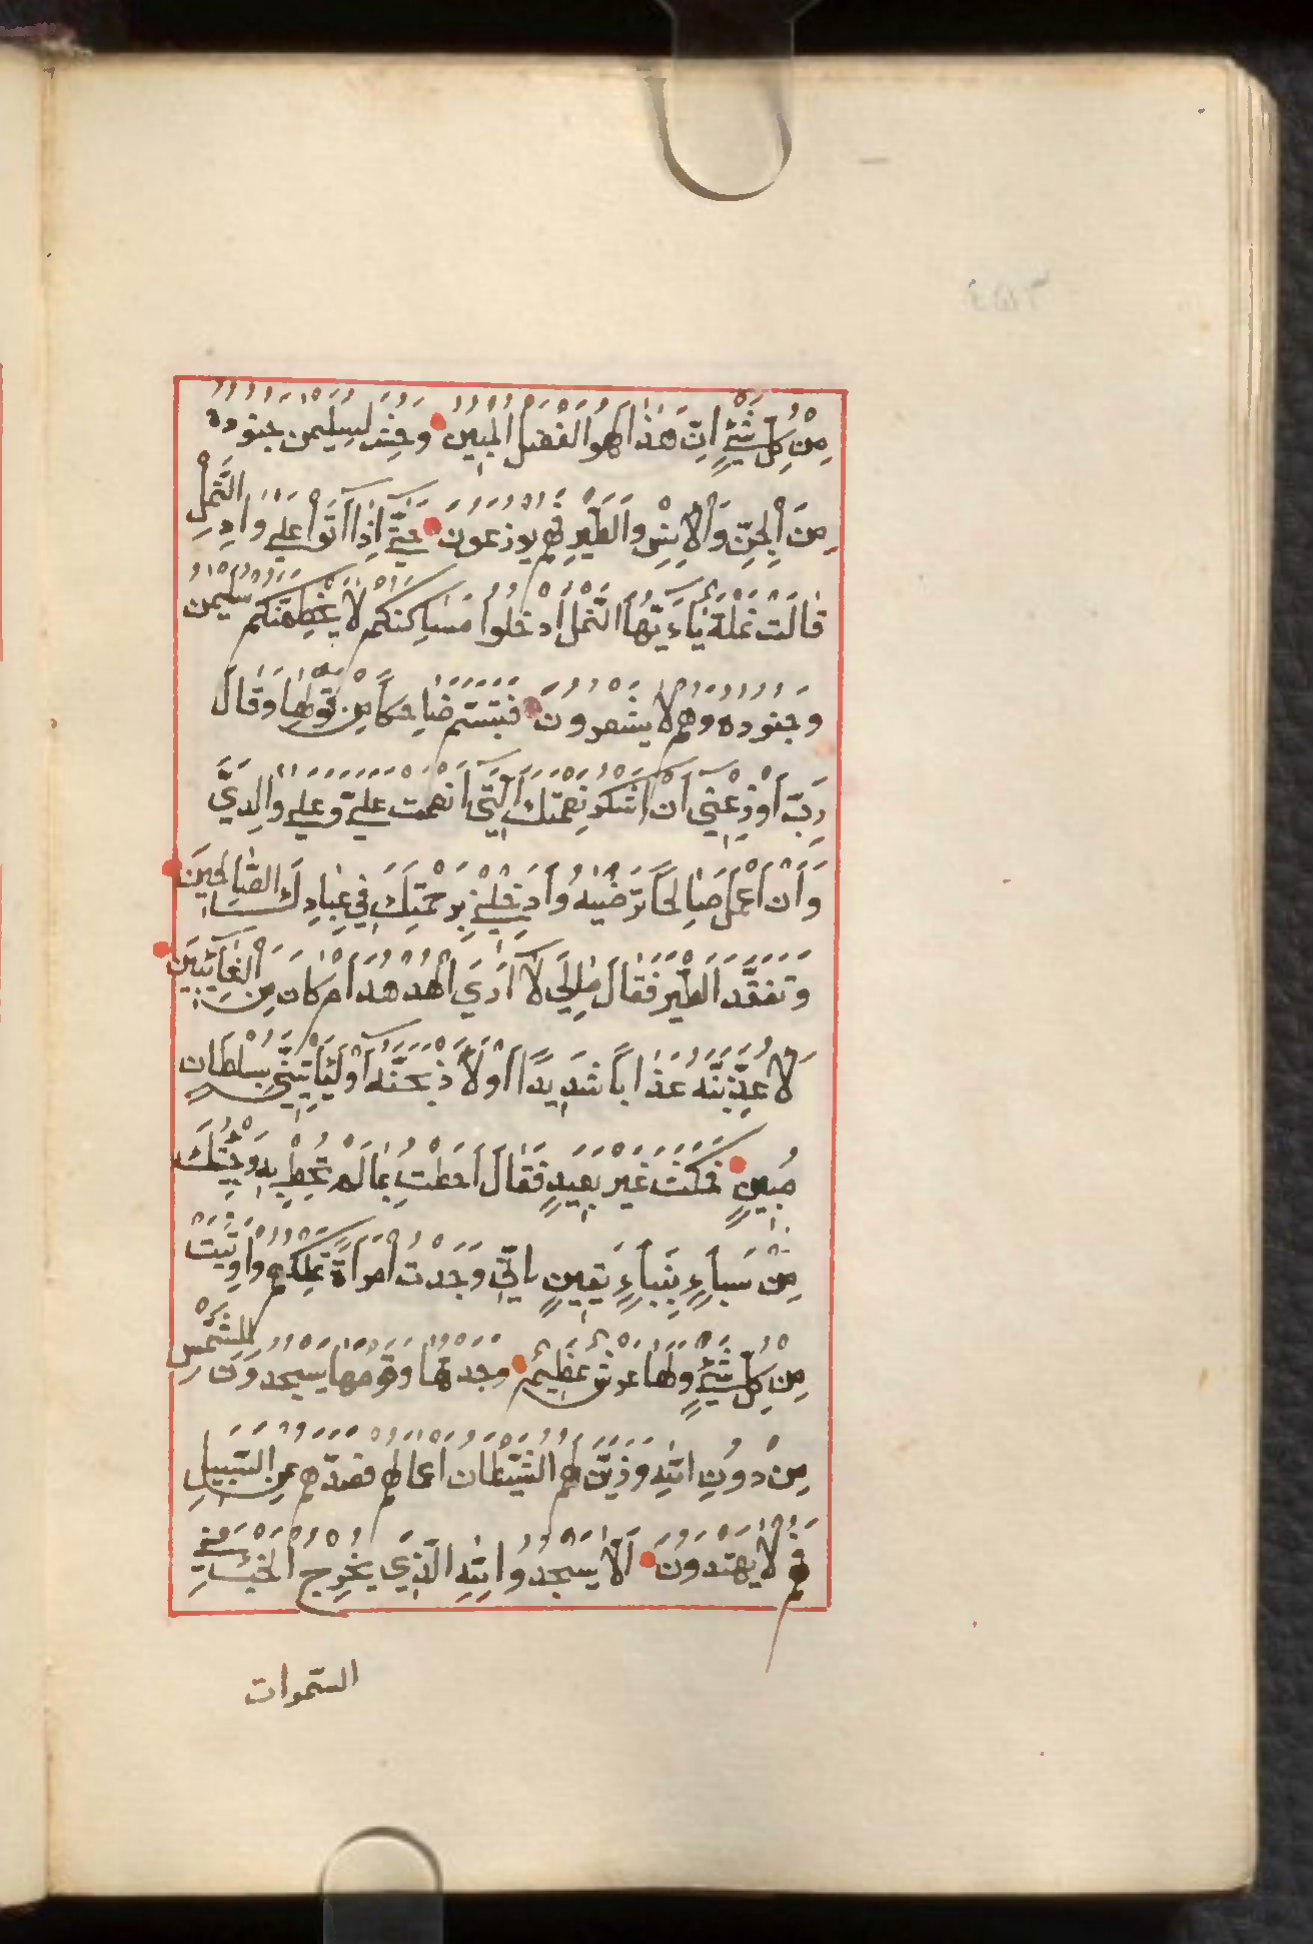 مِنْ كُلِّ شَيْءٍ اِنَّ هٰذَا لَهُوَ الْفَضْلُ الْمُبِينُ وَحُشِرَ لِسُلَيْمٰنَ جُنُودُهُ
مِنَ الْجِنِّ وَالْاِنْسِ وَالطَّيْرِ فَهُمْ يُوزَعُونَ حَتّٰى اِذَا اَتَوْا عَلٰى وَادِ النَّمْلِ
قَالَتْ نَمْلَةٌ يَاءَيُّهَا النَّمْلُ ادْخُلُوا مَسَاكِنَكُمْ لَا يَحْطِمَنَّكُمْ سُلَيْمٰنُ
وَجُنُودُهُ وَهُمْ لَا يَشْعُرُونَ فَتَبَسَّمَ ضَاحِكًا مِنْ قَوْلِهَا وَقَالَ
رَبِّ اَوْزِعْنِى اَنْ اَشْكُرَ نِعْمَتَكَ الَّتِى اَنْعَمْتَ عَلَىَّ وَعَلٰى وَالِدَيَّ
وَاَنْ اَعْمَلَ صَالِحًا تَرْضٰيهُ وَاَدْخِلْنِى بِرَحْمَتِكَ فِى عِبَادِكَ الصَّالِحِينَ
وَتَفَقَّدَ الطَّيْرَ فَقَالَ مَالِيَ لَا اَرَيَ الْهُدْهُدَ اَمْ كَانَ مِنَ الْغَائِبِينَ
لَاُعَذِّبَنَّهُ عَذَابًا شَدِيدًا اَوْ لَاَذْبَحَنَّهُ اَوْ لَيَأْتِيَنِّى بِسُلْطَانٍ
مُبِينٍ فَمَكَثَ غَيْرَ بَعِيدٍ فَقَالَ اَحَطْتُ بِمَا لَمْ تُحِطْ بِهِ وَجِئْتُكَ
مِنْ سَبَأٍ بِنَبَأٍ يَقِينٍ اِنِّى وَجَدْتُ امْرَاَةً تَمْلِكُهُمْ وَاُوتِيَتْ
مِنْ كُلِّ شَيْءٍ وَلَهَا عَرْشٌ عَظِيمٌ وَجَدْتُهَا وَقَوْمَهَا يَسْجُدُونَ لِلشَّمْسِ
مِنْ دُونِ اللّٰهِ وَزَيَّنَ لَهُمُ الشَّيْطَانُ اَعْمَالَهُمْ فَصَدَّهُمْ عَنِ السَّبِيلِ
فَهُمْ لَا يَهْتَدُونَ اَلَّا يَسْجُدُوا لِلّٰهِ الَّذِى يُخْرِجُ الْخَبْءَ فِى
السّموات